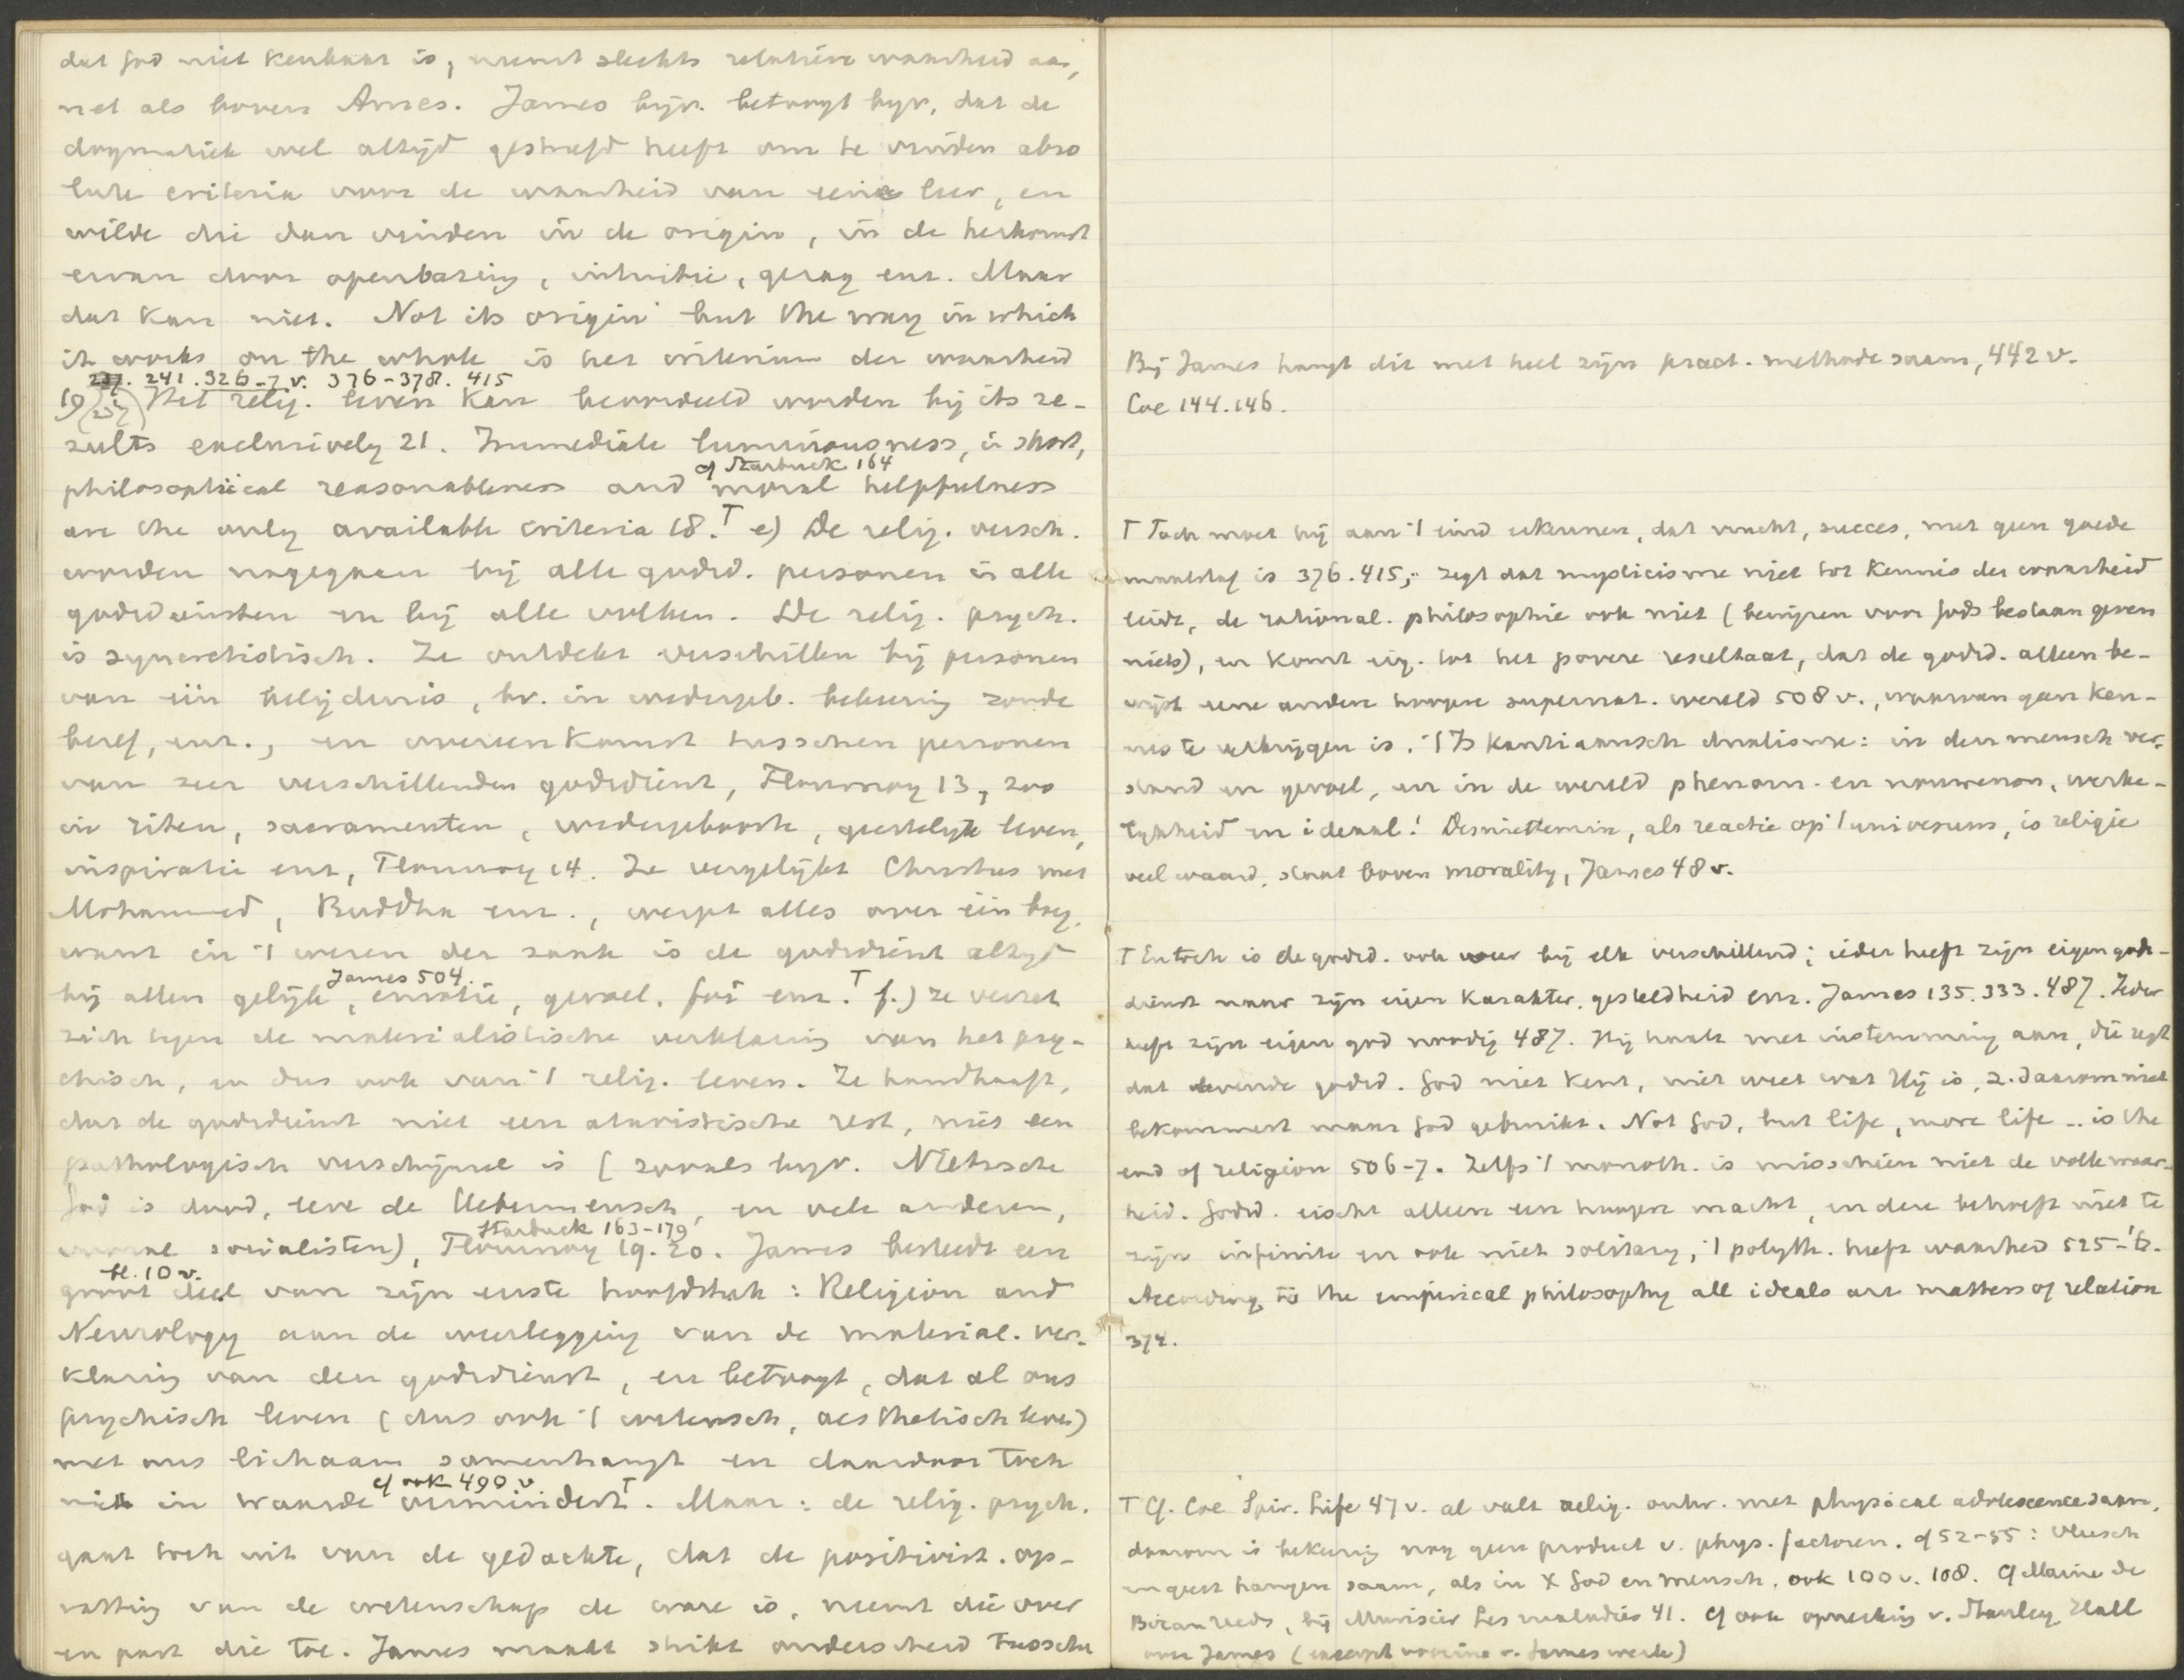 dat God niet kenbaar is, neemt slechts relatieve waarheid aan,
net als boven Ames. James bijv. betoogt bijv. dat de
dogmatiek wel altijd gestreefd heeft om te vinden abso
lute criteria voor de waarheid van eene leer, en
wilde die dan vinden in de origin, in de herkomst
ervan door openbaring, intuitie, gezag enz. Maar
dat kan niet. Not its origin but the way in which
it works on the whole is het criterium der waarheid
241. 326-7 v. 376-378. 415
19 Het relig. leven kan beoordeeld worden bij its re-
sults exclusively 21. Immediate luminousness, in short,
cf Starbuck 164
philosophical reasonableness and moral helpfulness
are the only available criteria 18. T e) De relig. versch.
worden nagegaan bij alle godsd. personen in alle
godsdiensten en bij alle volken. De relig. psych.
is syncretistisch. Ze ontdekt verschillen bij personen
van één belijdenis, bv. in wedergeb. bekeering zonde
besef, enz., en overeenkomst tusschen personen
van zeer verschillenden godsdienst, Flournoy 13, zoo
in riten, sacramenten, wedergeboorte, geestelijk leven,
inspiratie enz, Flournoy 14. Ze vergelijkt Christus met
Mohammed, Buddha enz., werpt alles over één boeg,
want in 't wezen der zaak is de godsdienst altijd
James 504.
bij allen gelijk, emotie, gevoel, enz. T f.) ze verzet
zich tegen de materialistische verklaring van het psy-
chisch, en dus ook van 't relig. leven. Ze handhaaft,
dat de godsdienst niet een atavistische rest, niet een
pathologisch verschijnsel is (zooals bijv. Nietzsche
God is dood, leve de Uebermensch, en vele anderen,
Starbuck 163-179
vooral socialisten), Flournoy 19. 20. James besteedt een
bl. 10 v.
groot deel van zijn eerste hoofdstuk: Religion and
Neurology aan de weerlegging van de material. ver-
klaring van den godsdienst, en betoogt, dat al ons
psychisch leven (dus ook 't wetensch, aesthetisch leven)
met ons lichaam samenhangt en daardoor toch
cf ook 490 v
niet in waarde vermindert T. Maar: de relig. psych.
gaat toch uit van de gedachte, dat de positivist. op-
vatting van de wetenschap de ware is, neemt die over
en past die toe. James maakt strikt onderscheid tussche
Bij James hangt dit met heel zijn pract. methode saam, 442 v.
Coe 144.146.
T Toch moet hij aan 't eind erkennen, dat vrucht, succes, met geen goede
maatstaf is 376.415, zegt dat mysticisme niet tot kennis der waarheid
leidt, de rational. philosophie ook niet (bewijzen voor Gods bestaan geven
niets), en komt eig. tot het povere resultaat, dat de godsd. alleen be-
wijst eene andere hoogere supernat. wereld 508 v., waarvan geen ken-
nis te verkrijgen is. 't Is Kantiaansch dualisme: in den mensch ver-
stand en gevoel, en in de wereld phenom. en noumenon, werke-
lijkheid en ideaal! Desniettemin, als reactie op 't universum, is religie
veel waard, staat boven morality, James 48 v.
T En toch is de godsd. ook weer bij elk verschillend; ieder heeft zijn eigen gods-
dienst naar zijn eigen karakter, gesteldheid enz. James 135. 333. 487. Ieder
heeft zijn eigen god noodig 487. Hij haalt met instemming aan, die zegt
dat levende godsd. God niet kent, niet weet wat Hij is, z. daarom niet
bekommert maar God gebruikt. Not God, but life, more life .. is the
end of religion 506-7. Zelfs 't monoth. is misschien niet de volle waar-
heid. Godsd. eischt alleen een hoogere macht, en deze behoeft niet te
zijn infinite en ook niet solitary, 't polyth. heeft waarheid 525-6.
According to the empirical philosophy all ideals are matters of relation
374.
T Cf. Coe Spir. Life 47 v. al valt relig. ontw. met physical adolescence saam,
daarom is bekeering nog geen product v. phys. factoren. cf 52-55: vleesch
en geest hangen saam, als in X God en mensch, ook 100 v. 108. Cf Maine de
Biran reeds, bij Murisier Les maladies 41. Cf ook opmerking v. Stanley Hall
over James (excerpt voorin v. James werk)